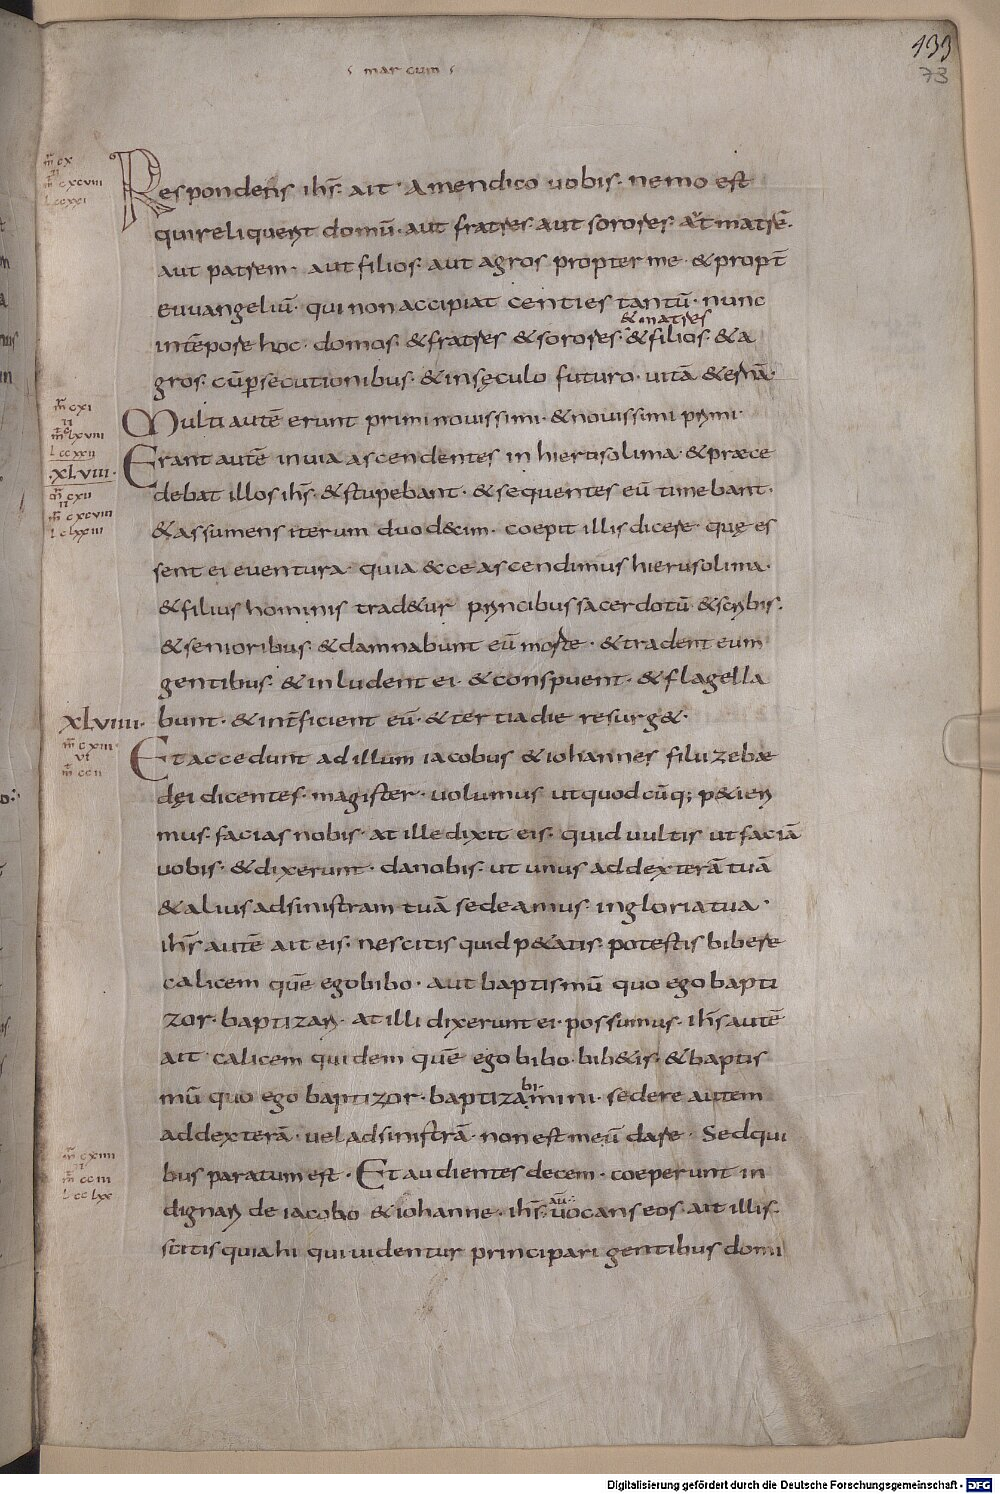 marcum
133
73
m̄ cx
m̄ cxcviii
l ccxxi
Respondens ihs̄ ait · Amendico uobis · nemo est
qui reliquerit domū · aut fratres aut sorores · aut matrē ·
aut patrem · aut filios · aut agros propter me · & propt̄
euuangeliū · qui non accipiat centies tantū · nunc
& matres
in tēpore hoc · domos · & fratres & sorores · & filios · & a
gros · cū persecutionibus · & in sęculo futuro · uitā & ernā ·
m̄ cxi
Multi autē erunt primi nouissimi · & nouissimi primi ·
l ccxxii
XLVIII ·
Erant autē in uia ascendentes in hierusolima · & præce
debat illos ihs̄ · & stupebant · & sequentes eū timebant ·
m̄ cxii
m̄ cxcviiii
& assumens iterum duod&cim · coepit illis dicere · quę es
sent ei euentura · quia &ce ascendimus hierusolima ·
& filius hominis trad&ur principibus sacerdotū & scribis ·
& senioribus · & damnabunt eū morte · & tradent eum
gentibus · & inludent ei · & conspuent · & flagella
XLVIIII ·
bunt · & int̄ficient eū · & tertia die resurg& ·
m̄ cxiii
vi
m̄ ccii
Et accedunt ad illum iacobus & iohannes filii zebæ
dęi dicentes · magister · uolumus ut quodcūq; p&ieri
mus · facias nobis · at ille dixit eis · quid uultis ut faciā
uobis · & dixerunt · da nobis · ut unus ad dexterā tuā
& alius ad sinistram tuā sedeamus · in gloria tua ·
ihs̄ autē ait eis · nescitis quid p&atis · potestis bibere
calicem quē ego bibo · aut baptismū quo ego bapti
zor · baptizari · at illi dixerunt ei · possumus · ihs̄ autē
ait · calicem quidem quē ego bibo · bib&is · & baptis
bi
mū quo ego baptizor · baptizamini · sedere autem
ad dexterā · uel ad sinistrā · non est meū dare · Sed qui
m̄ cxiiii
m̄ cciii
l cclxx
bus paratum est · Et audientes decem · coeperunt in
aū
dignari de iacobo & iohanne · ihs̄ uocans eos · ait illis ·
scitis quia hi qui uidentur principari gentibus domi
Digitalisierung gefördert durch die Deutsche Forschungsgemeinschaft - DFG